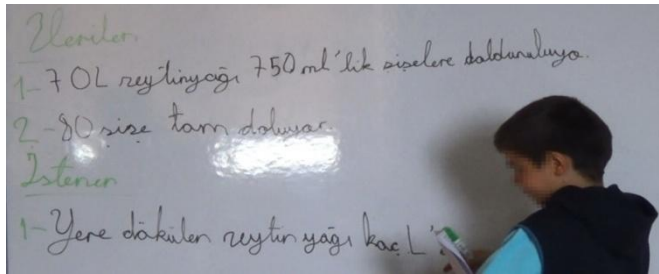 Verilen
1- 70L zeytinyağı 750 ml'lik şişelere dolduruluyo.
2- 80 şişe tam doluyor
İstenen
1- Yere dökülen zeytinyağı kaç L?